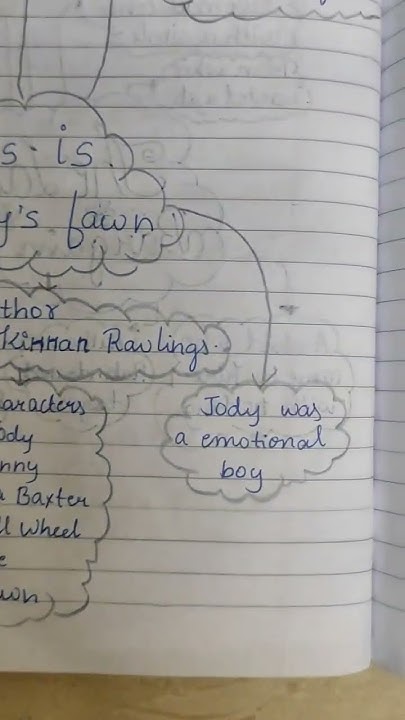 s is
y's fawn
thor
Kinnan Rawlings.
aracters
ody
nny
a Baxter
ll wheel
e
wn
Jody was
a emotional
boy